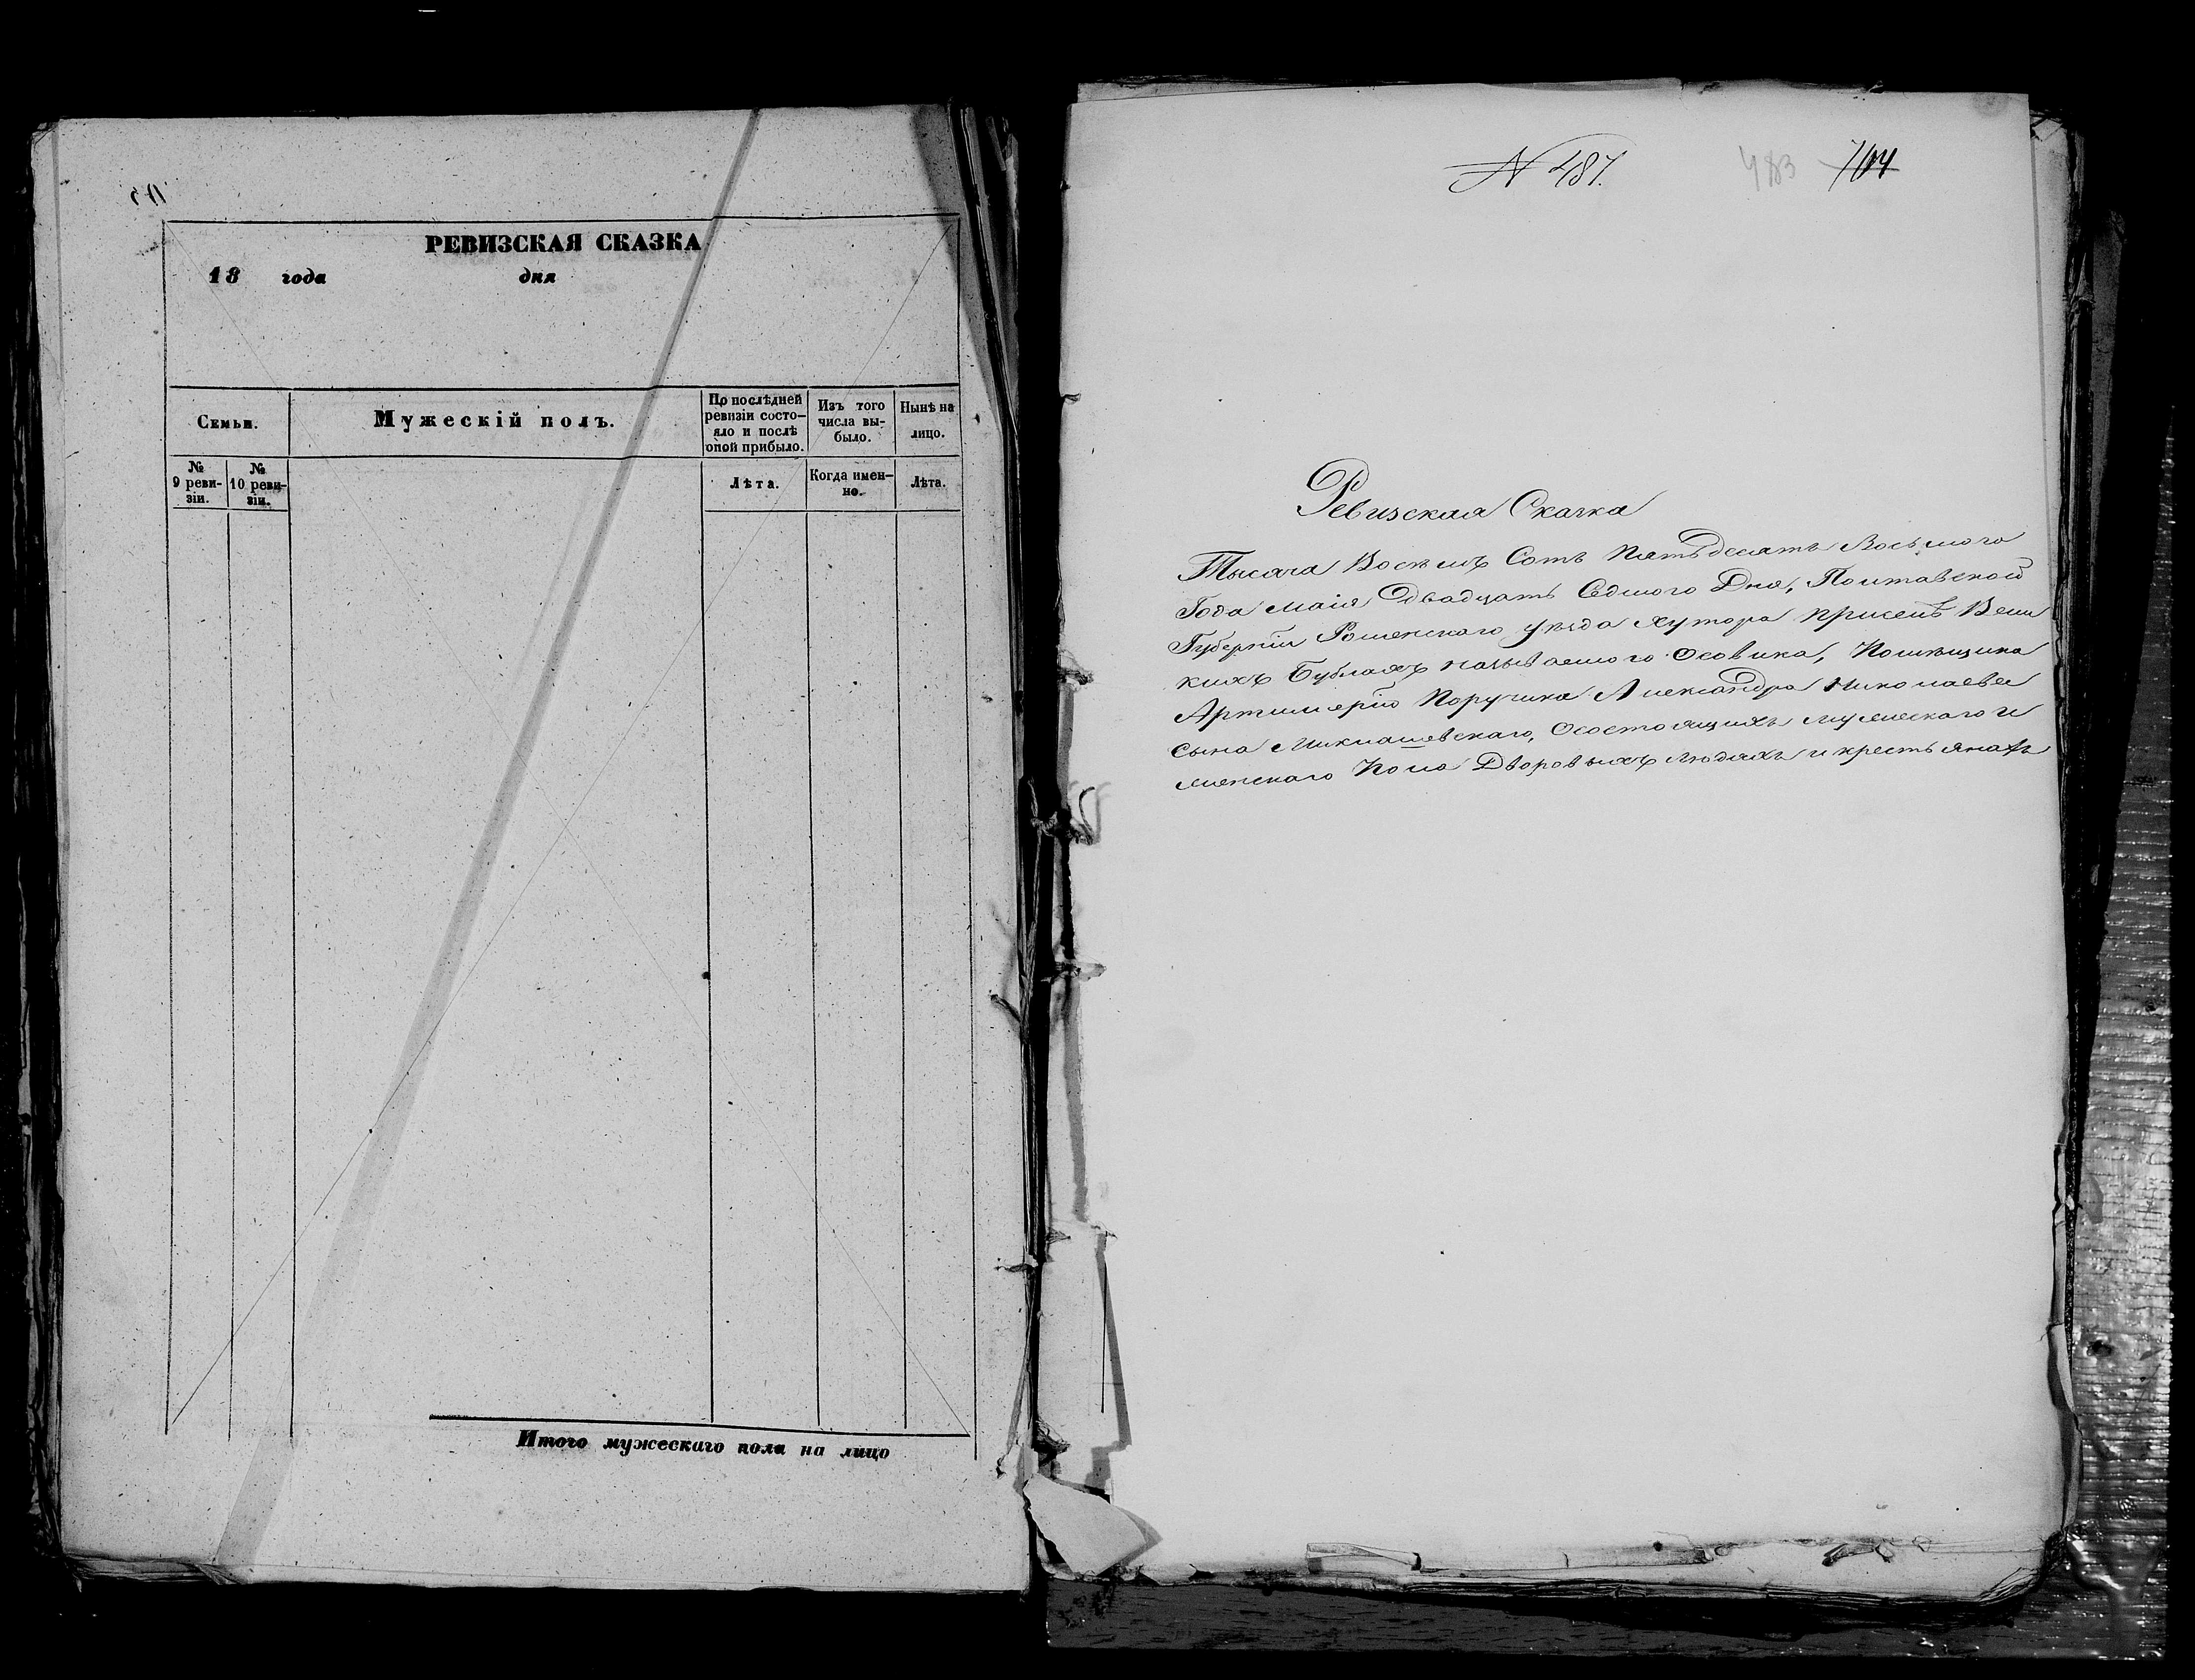 РЕВИЗСКАЯ СКАЗКА
18 года дня
Семьи.
Мужескій полъ.
По послѣдней ревизіи состо-
яло и послѣ оной прибыло.
Изъ того числа вы-
было.
Нынѣ на лицо.
№ 9 реви-
зіи.
№ 10 реви-
зіи.
Лѣта.
Когда имен-
но.
Лѣта.
Итого мужескаго пола на лицо
N 487.
483
704
Ревизская Сказка
Тысяча Восемъ Сотъ Пятьдесятъ Восьмого
Года маія двадцать Седмого Дня, Полтавской
Губерніи Роменскаго уѣзда Хутора приселѣ Вели
кихъ Бубнахъ называемого Осовика, Помѣщика
Артиллеріи Поручика Александра Николаева
сына Миклашевскаго, Осостоящихъ мужескаго и
женскаго Пола Дворовыхъ людяхъ и крестьянахъ